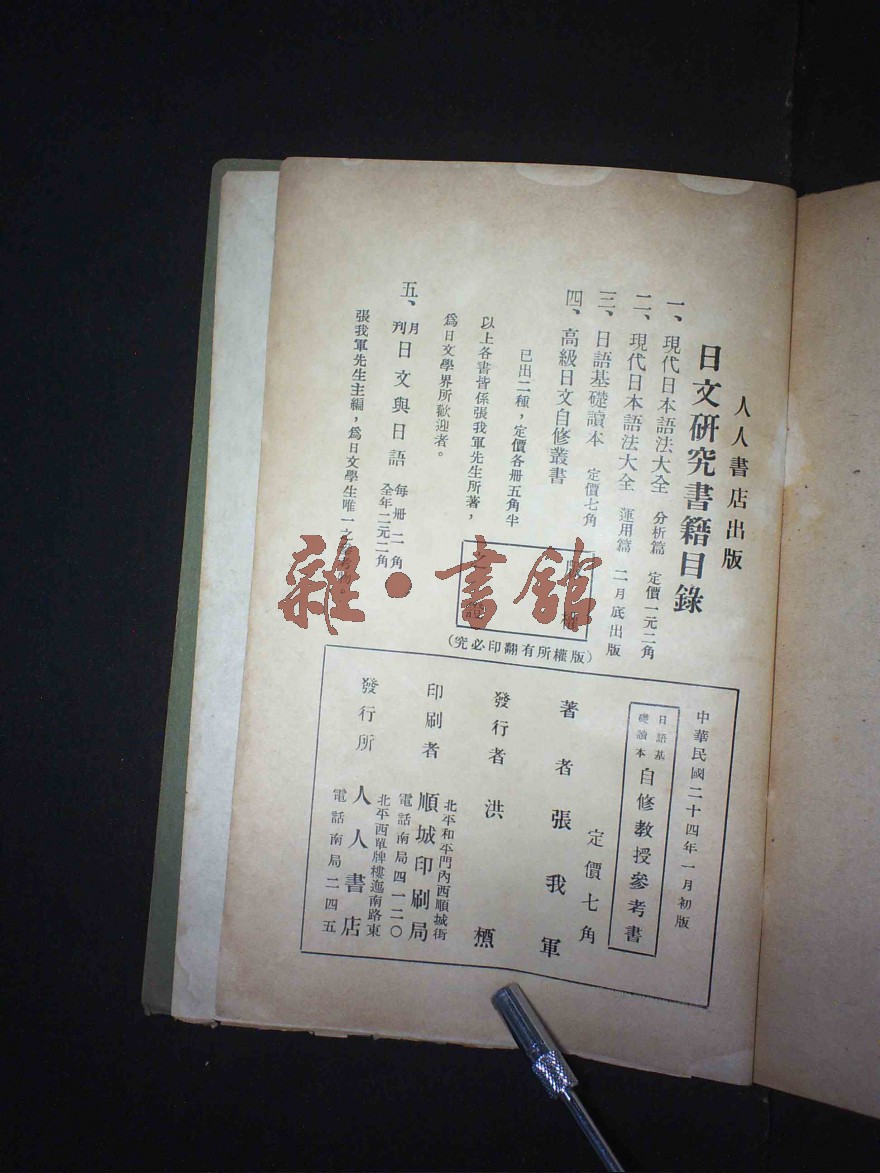 人人書店出版
日文研究書籍目錄
一、現代日本語法大全 分析篇 定價一元二角
二、現代日本語法大全 運用篇 二月底出版
三、日語基礎讀本 定價七角
四、高級日文自修叢書
已出二種，定價各册五角半
以上各書皆係張我軍先生所著，
爲日文學界所歡迎者。
五、月刊 日文與日語 每册二角 全年二元二角
張我軍先生主編，爲日文學生唯一之
版權
之證
(版權所有翻印必究)
中華民國二十四年一月初版
日語基礎讀本 自修教授參考書
定價七角
著者 張我軍
發行者 洪
印刷者 順城印刷局
北平和平門內西順城街
電話南局四一二〇
發行所 人人書店
北平西單牌樓迤南路東
電話南局二四五
雜·書館